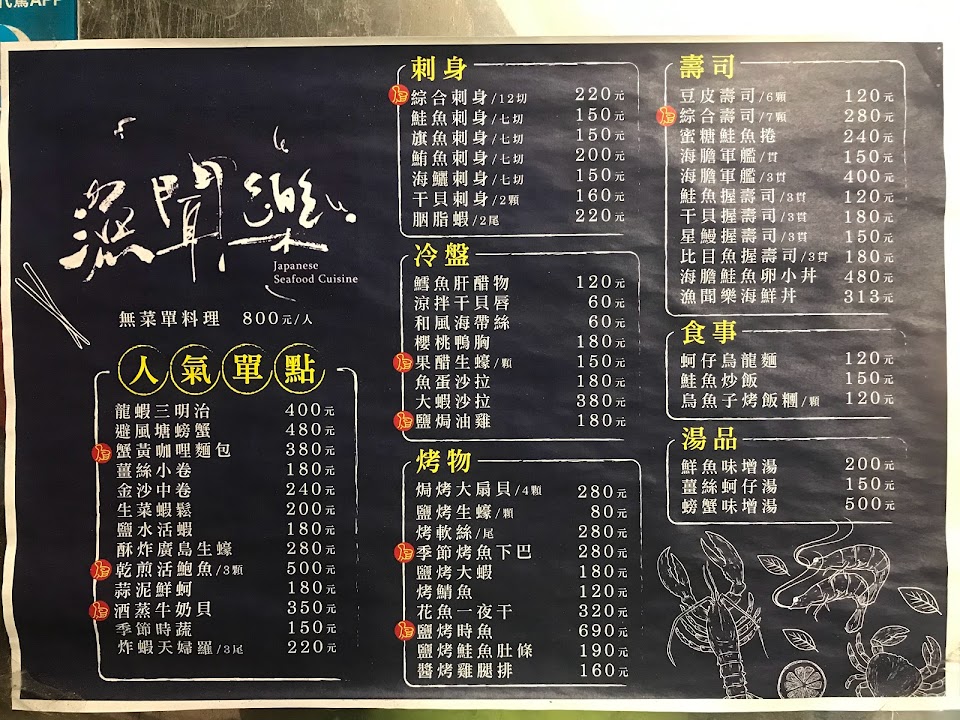 代駕APP
漁聞樂
Japanese
Seafood Cuisine
無菜單料理 800元/人
人氣單點
龍蝦三明治 400元
避風塘螃蟹 480元
蟹黃咖哩麵包 380元
薑絲小卷 180元
金沙中卷 240元
生菜蝦鬆 200元
鹽水活蝦 180元
酥炸廣島生蠔 280元
乾煎活鮑魚/3顆 500元
蒜泥鮮蚵 180元
酒蒸牛奶貝 350元
季節時蔬 150元
炸蝦天婦羅/3尾 220元
刺身
綜合刺身/12切 220元
鮭魚刺身/七切 150元
旗魚刺身/七切 150元
鮪魚刺身/七切 200元
海鱺刺身/七切 150元
干貝刺身/2顆 160元
胭脂蝦/2尾 220元
冷盤
鱈魚肝醋物 120元
涼拌干貝唇 60元
和風海帶絲 60元
櫻桃鴨胸 180元
果醋生蠔/顆 150元
魚蛋沙拉 180元
大蝦沙拉 380元
鹽焗油雞 180元
烤物
焗烤大扇貝/4顆 280元
鹽烤生蠔/顆 80元
烤軟絲/尾 280元
季節烤魚下巴 280元
鹽烤大蝦 180元
烤鯖魚 120元
花魚一夜干 320元
鹽烤時魚 690元
鹽烤鮭魚肚條 190元
醬烤雞腿排 160元
壽司
豆皮壽司/6顆 120元
綜合壽司/7顆 280元
蜜糖鮭魚捲 240元
海膽軍艦/貫 150元
海膽軍艦/3貫 400元
鮭魚握壽司/3貫 120元
干貝握壽司/3貫 180元
星鰻握壽司/3貫 150元
比目魚握壽司/3貫 180元
海膽鮭魚卵小丼 480元
漁聞樂海鮮丼 313元
食事
蚵仔烏龍麵 120元
鮭魚炒飯 150元
烏魚子烤飯糰/顆 120元
湯品
鮮魚味增湯 200元
薑絲蚵仔湯 150元
螃蟹味增湯 500元